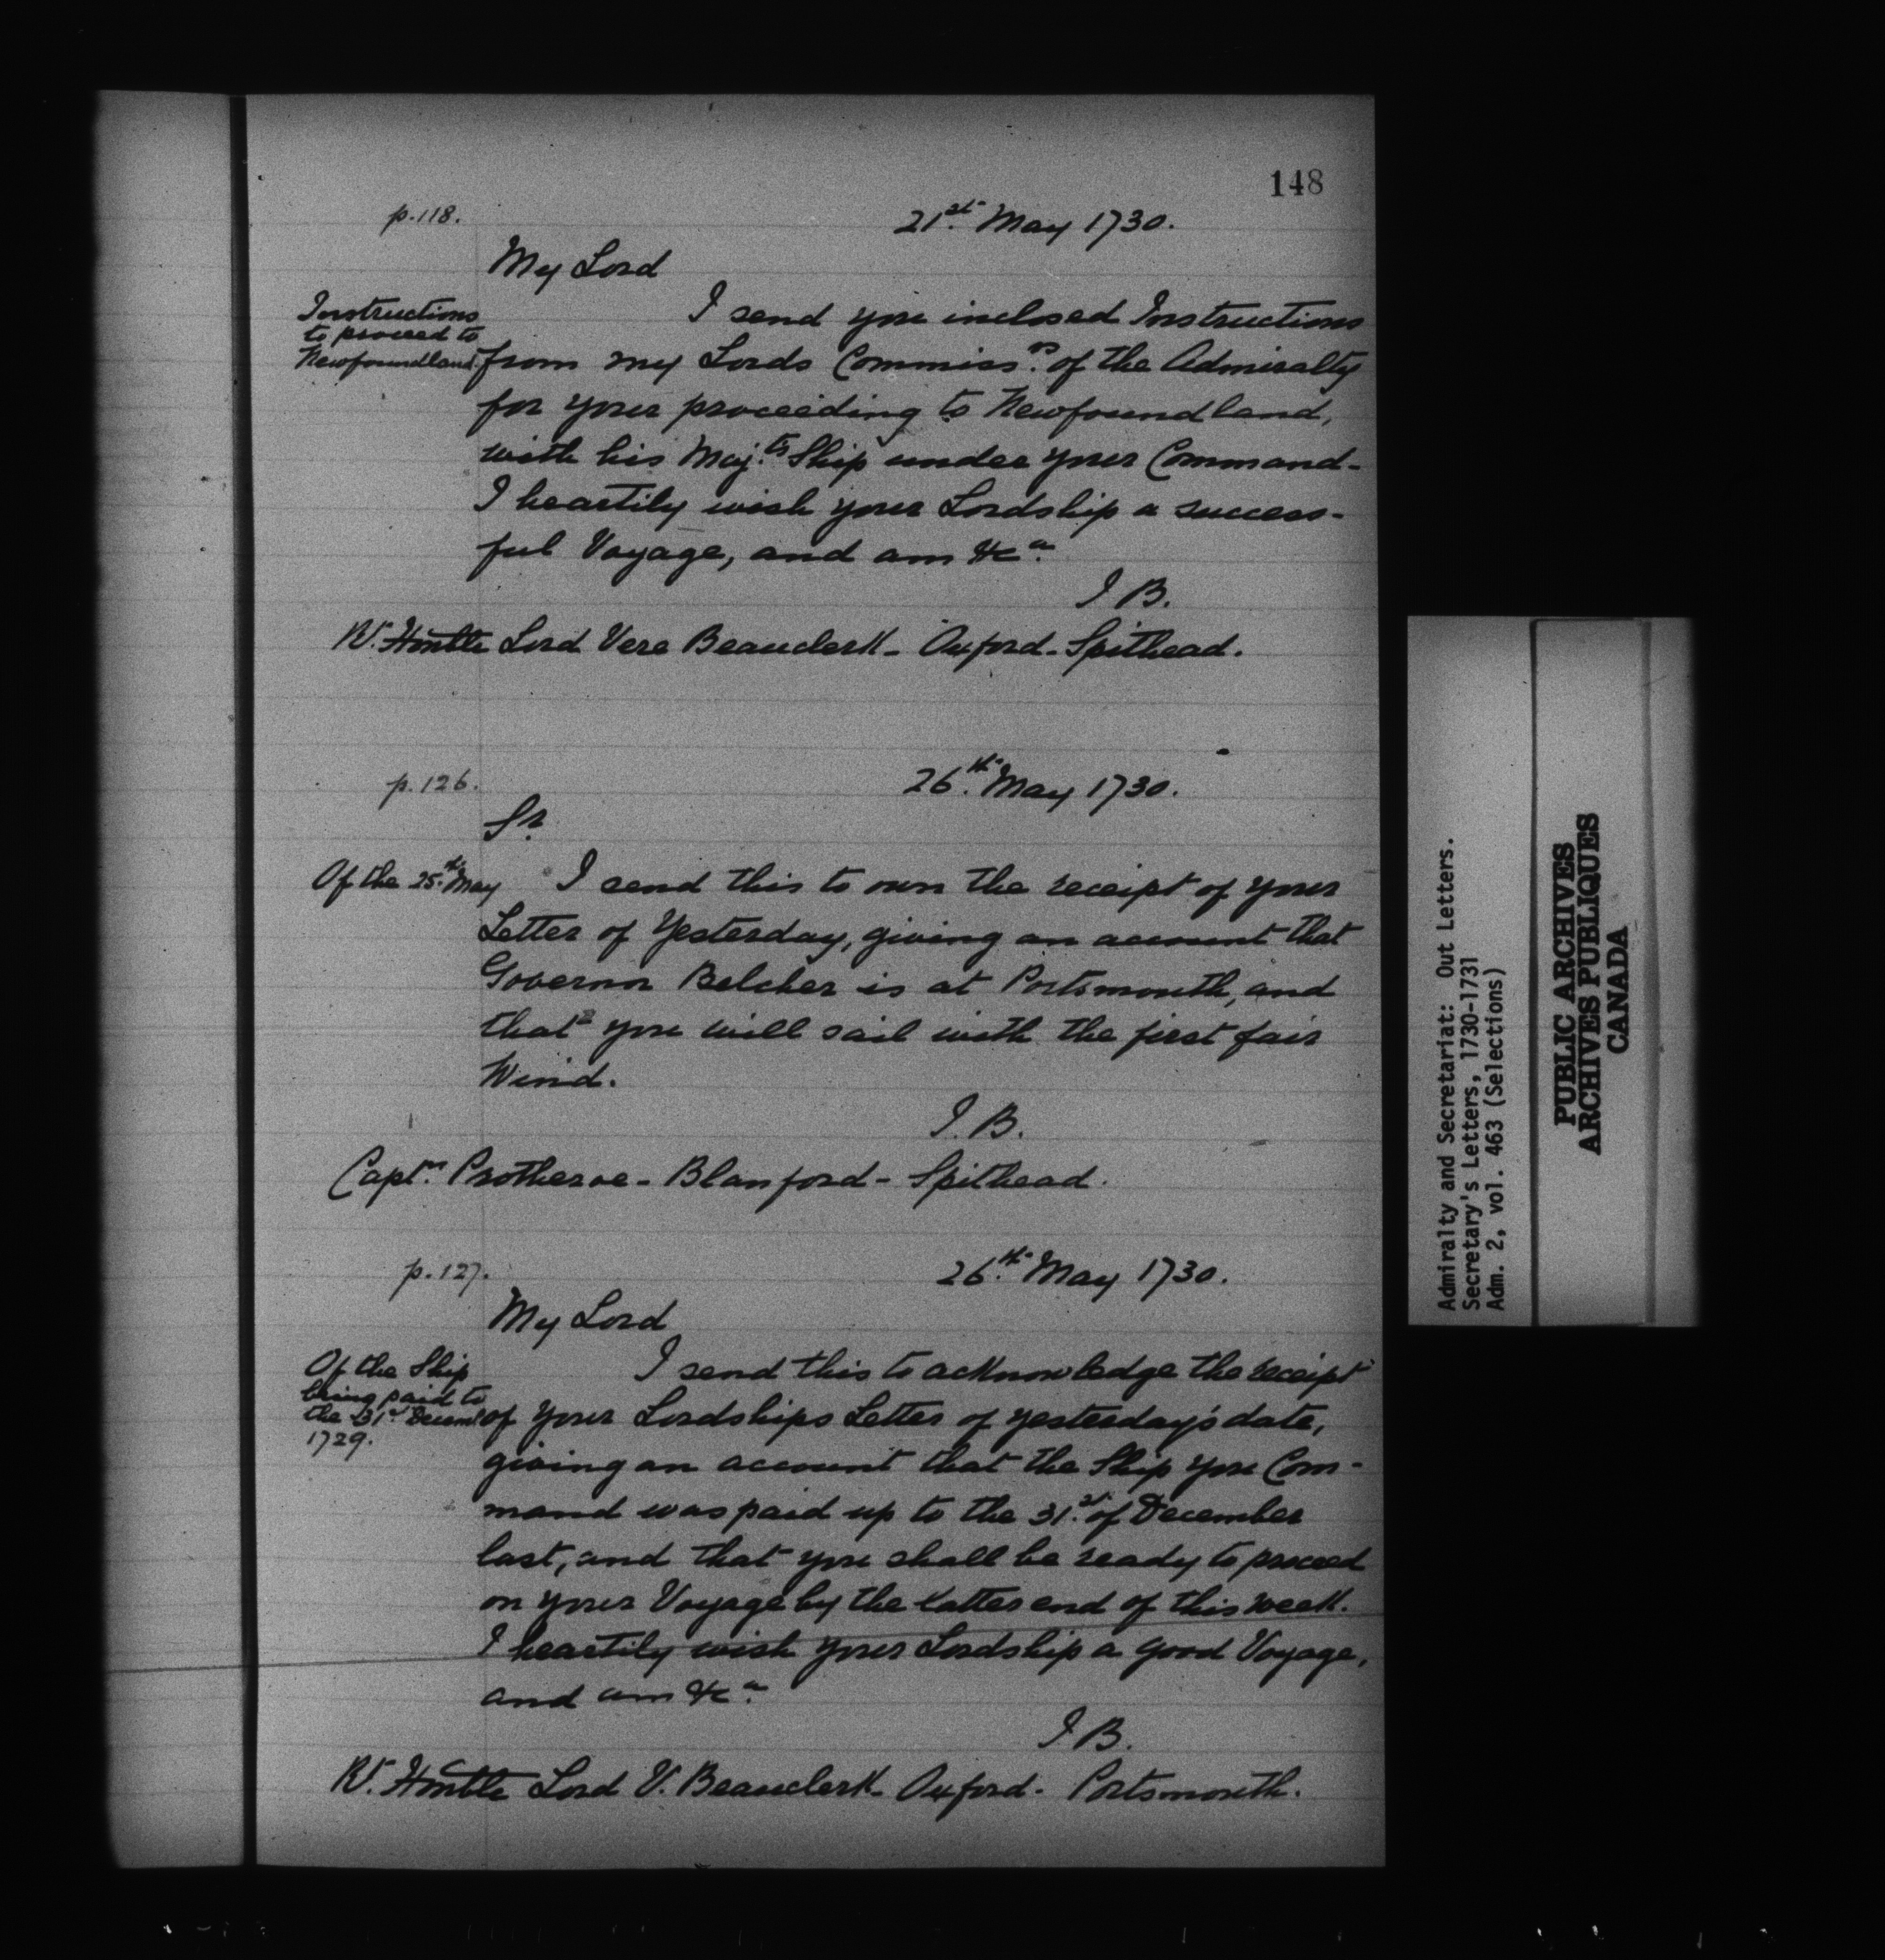 148
p.118.
21st. May 1730.
My Lord
Instructions
to proceed to
Newfoundland.
I send you inclosed Instructions
from my Lords Commissrs. of the Admiralty
for your proceeding to Newfoundland,
with his Maj.ts Ship under your Command-
I heartily wish your Lordship a success-
ful Voyage, and am &ca.
I B.
Rt. Honble Lord Vere Beauclerk - Oxford - Spithead.
p.126.
26th. May 1730.
Sr.
Of the 25th. May
I send this to own the receipt of your
Letter of Yesterday, giving an account that
Governor Belcher is at Portsmouth, and
that you will sail with the first fair
Wind.
I. B.
Captn. Protheroe - Blanford - Spithead.
p.127.
26th. May 1730.
My Lord
Of the Ship
being paid to
the 31st Decem
1729.
I send this to acknowledge the receipt
of your Lordships Letter of yesterday's date,
giving an account that the Ship you Com-
mand was paid up to the 31st. of December
last, and that you shall be ready to proceed
on your Voyage by the latter end of this week.
I heartily wish your Lordship a good Voyage,
and am &ca.
I B.
Rt. Honble Lord V. Beauclerk - Oxford - Portsmouth.
Admiralty and Secretariat: Out Letters.
Secretary's Letters, 1730-1731
Adm. 2, vol. 463 (Selections)
PUBLIC ARCHIVES
ARCHIVES PUBLIQUES
CANADA